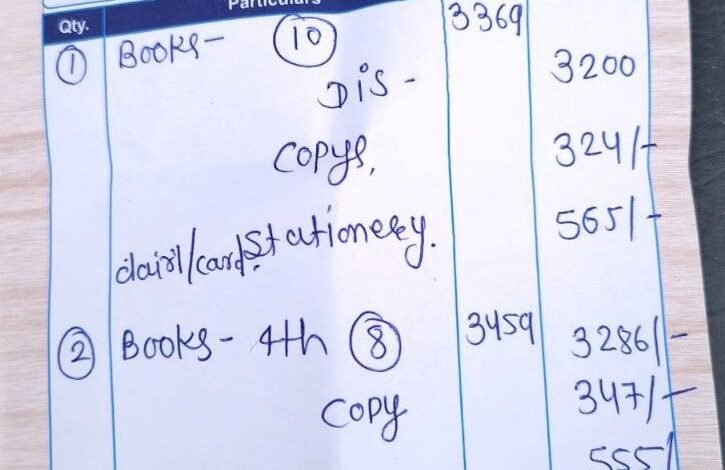 Qty. Particulars
1 Books - 10 3369
Dis - 3200
Copys, 324/-
dairi/card Stationery. 565/-
2 Books - 4th 8 3459 3286/-
Copy 347/-
555/